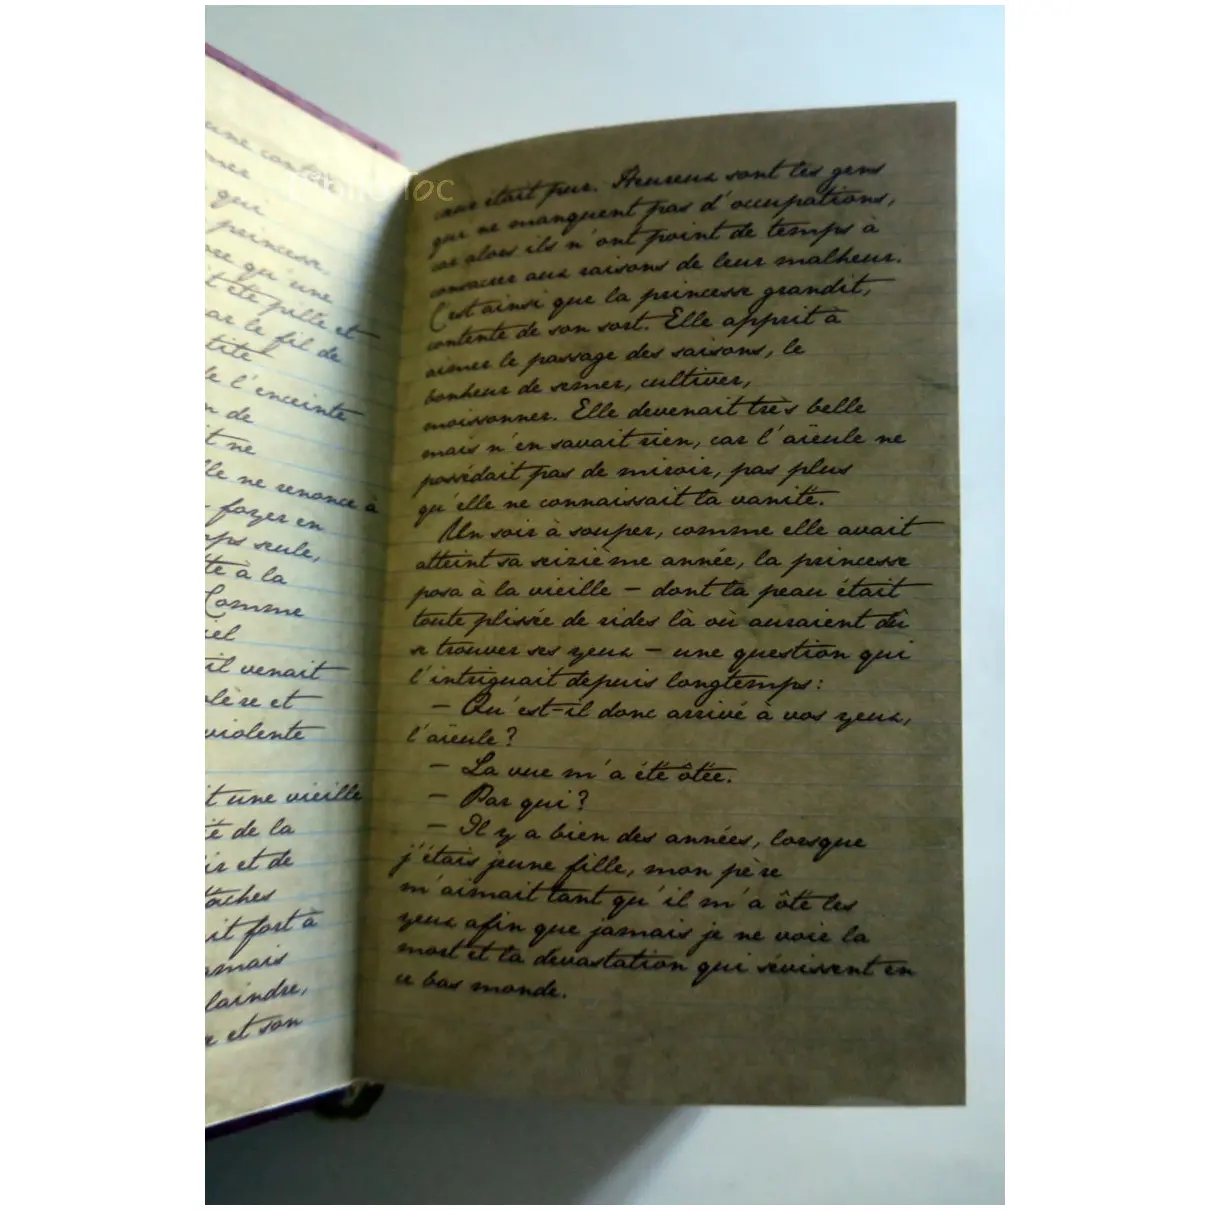 une cont
mer
qui
princesse.
ore qu'une
t été pille et
ar le fil de
tite
le l'enceinte
n de
it ne
lle ne renonce à
foyer en
mps seule,
te à la
Comme
iel
il venait
lère et
violente
t une vieille
té de la
ir et de
tâches
it fort à
amais
laindre,
et son
Toc
cœur était pur. Heureux sont les gens
qui ne manquent pas d'occupations,
car alors ils n'ont point de temps à
consacrer aux raisons de leur malheur.
C'est ainsi que la princesse grandit,
contente de son sort. Elle apprit à
aimer le passage des saisons, le
bonheur de semer, cultiver,
moissonner. Elle devenait très belle
mais n'en savait rien, car l'aïeule ne
possédait pas de miroir, pas plus
qu'elle ne connaissait la vanité.
Un soir à souper, comme elle avait
atteint sa seizième année, la princesse
posa à la vieille – dont la peau était
toute plissée de rides là où auraient dû
se trouver ses yeux – une question qui
l'intriguait depuis longtemps :
– Qu'est-il donc arrivé à vos yeux,
l'aïeule ?
– La vue m'a été ôtée.
– Par qui ?
– Il y a bien des années, lorsque
j'étais jeune fille, mon père
m'aimait tant qu'il m'a ôté les
yeux afin que jamais je ne voie la
mort et la dévastation qui sévissent en
ce bas monde.